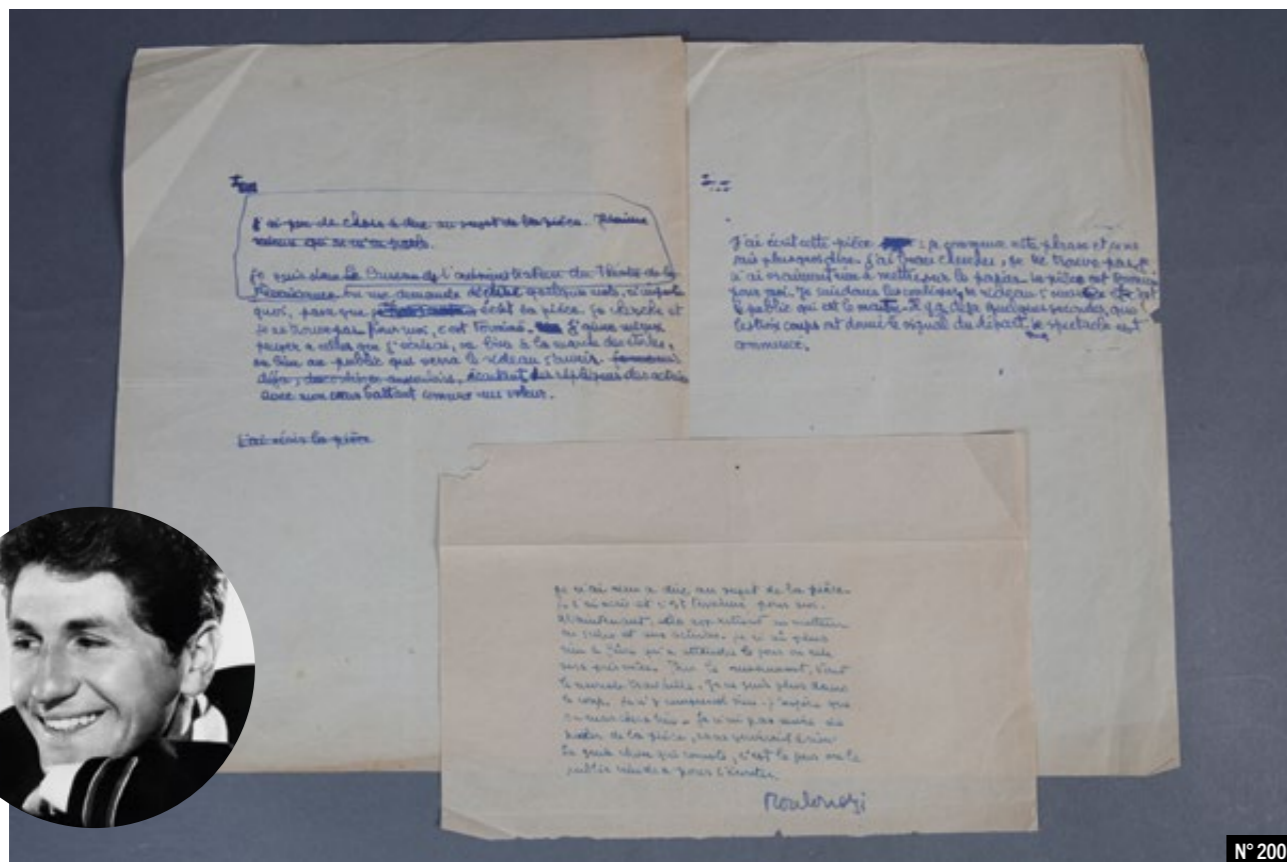 J'ai peu de chose à dire au sujet de la pièce. J'aime
mieux qu'on n'en parle.
Je suis dans le Bureau de l'administrateur du Théâtre de la
Renaissance on me demande d'écrire quelques mots, n'importe
quoi, parce que j'ai écrit la pièce. Je cherche et
je ne trouve pas. Pour moi, c'est terminé. J'aime mieux
penser à celle que j'écrirai, ou bien à la marche des étoiles,
ou bien au public qui verra le rideau s'ouvrir.
déjà, écoutant les répliques des actrices
avec mon cœur battant comme un voleur.
J'ai écris la pièce
J'ai écrit cette pièce : je commence cette phrase et je ne
sais plus quoi dire. J'ai beau chercher, je ne trouve pas. Je
n'ai vraiment rien à mettre sur le papier. La pièce est terminée
pour moi. Je suis dans les coulisses, le rideau s'ouvre et c'est
le public qui est le maître. Il y a déjà quelques secondes que
les trois coups ont donné le signal du départ, le spectacle est
commencé.
Je n'ai rien à dire au sujet de la pièce.
Je l'ai écrit et c'est terminé pour moi.
Maintenant, elle appartient au metteur
en scène et aux acteurs. Je n'ai plus
rien à faire qu'à attendre le jour où elle
sera présentée. Pour le moment, tout
le monde travaille. Je ne suis plus dans
le coup. Je n'y comprend rien. J'espère que
ça marchera bien. Je n'ai pas envie de
parler de la pièce, ça ne servirait à rien.
La seule chose qui compte, c'est le jour où le
public viendra pour l'écouter.
Mouloudji
N° 200